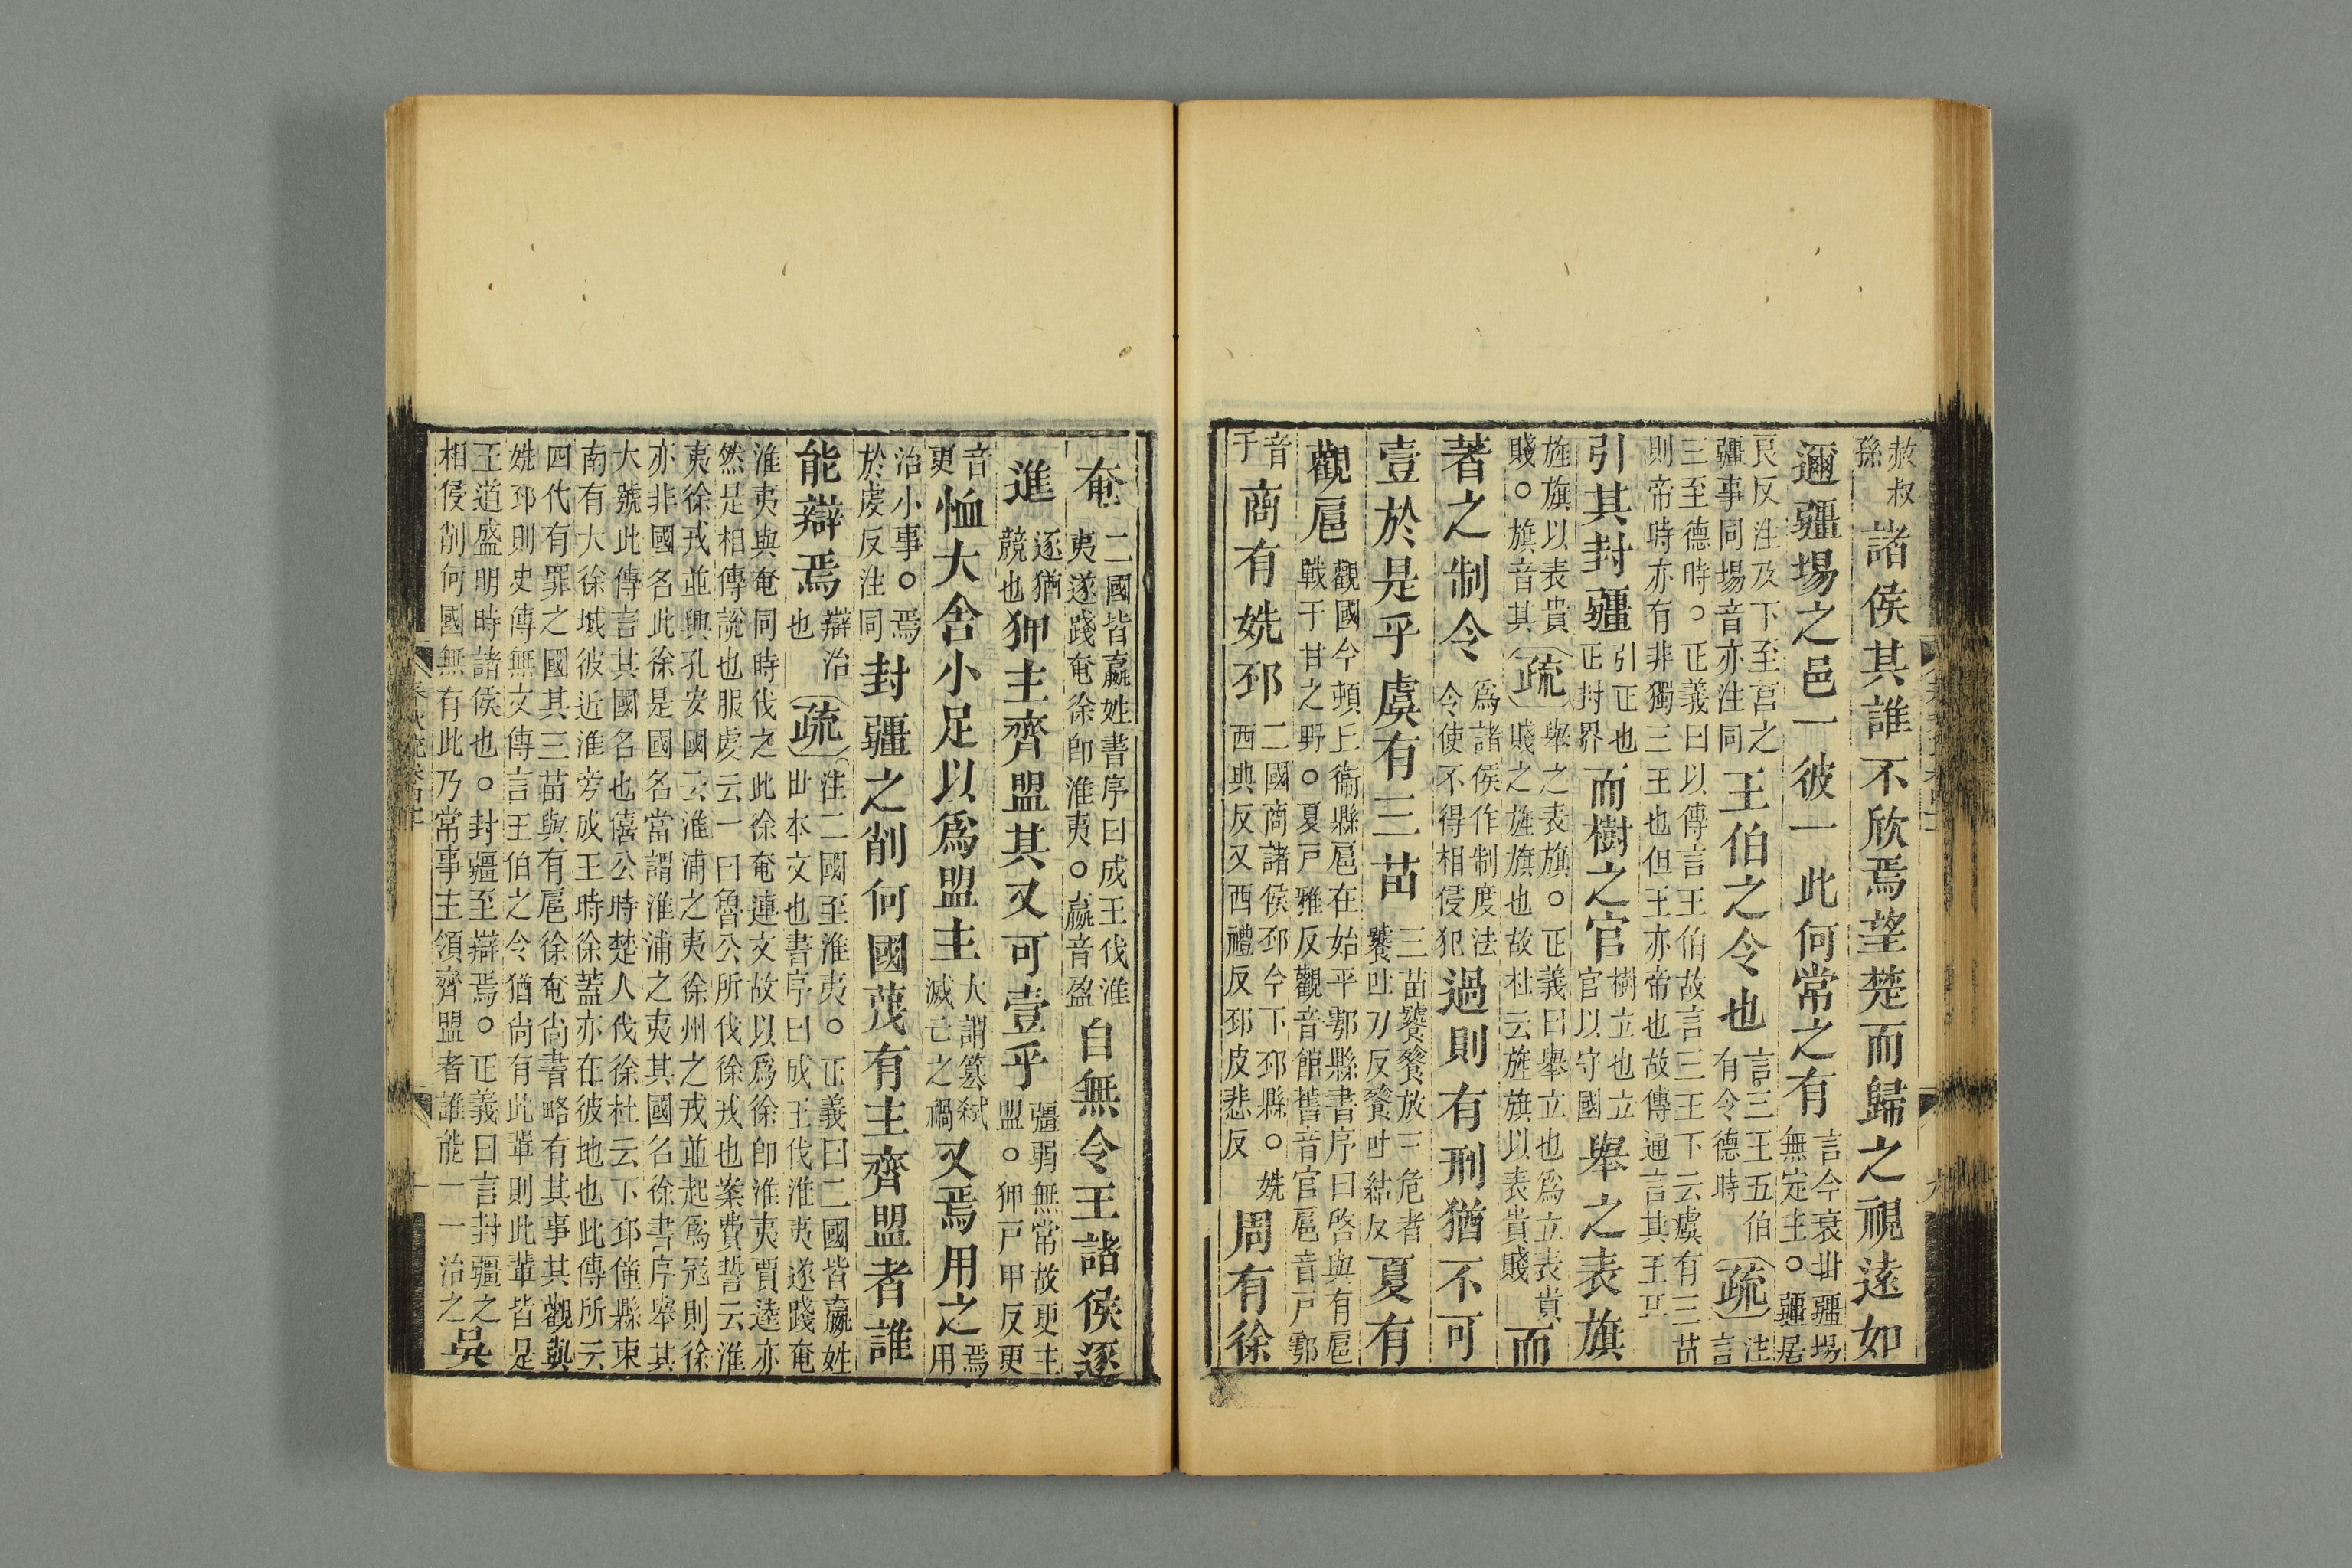 赦叔
孫
諸侯其誰不欣焉望楚而歸之視遠如
邇疆埸之邑一彼一此何常之有
言今衰丗疆埸
無定主○疆居
良反注及下至官之
疆事同埸音亦注同
王伯之令也
言三王五伯
有令德時
疏
注
言
三至德時○正義曰以傳言王伯故言三王下云虞有三苗
則帝時亦有非獨三王也但王亦帝也故傳通言其王耳
引其封疆
引正也
正封界
而樹之官
樹立也立
官以守國
舉之表旗
旌旗以表貴
賤○旗音其
疏
舉之表旗○正義曰舉立也爲立表貴
賤之旌旗也故杜云旌旗以表貴賤
而
著之制令
爲諸侯作制度法
令使不得相侵犯
過則有刑猶不可
壹於是乎虞有三苗
三苗饕餮放三危者
饕吐刀反餮吐結反
夏有
觀扈
觀國今頓丘衞縣扈在始平鄠縣書序曰啓與有扈
戰于甘之野○夏戸雅反觀音館舊音官扈音戸鄠
音
于
商有姺邳
二國商諸侯邳今下邳縣○姺
西典反又西禮反邳皮悲反
周有徐
奄
二國皆嬴姓書序曰成王伐淮
夷遂踐奄徐即淮夷○嬴音盈
自無令王諸侯逐
進
逐猶
競也
狎主齊盟其又可壹乎
彊弱無常故更主
盟○狎戸甲反更
音
更
恤大舍小足以爲盟主
大謂簒弑
滅亡之禍
又焉用之
焉
用
治小事○焉
於虔反注同
封疆之削何國蔑有主齊盟者誰
能辯焉
辯治
也
疏
注二國至淮夷○正義曰二國皆嬴姓
丗本文也書序曰成王伐淮夷遂踐奄
淮夷與奄同時伐之此徐奄連文故以爲徐即淮夷賈逵亦
然是相傳說也服虔云一曰魯公所伐徐戎也案費誓云淮
夷徐戎並興孔安國云淮浦之夷徐州之戎並起爲寇則徐
亦非國名此徐是國名當謂淮浦之夷其國名徐書序舉其
大號此傳言其國名也僖公時楚人伐徐杜云下邳僮縣東
南有大徐城彼近淮旁成王時徐蓋亦在彼地也此傳所云
四代有罪之國其三苗與有扈徐奄尚書略有其事其觀與
姺邳則史傳無文傳言王伯之令猶尚有此輩則此輩皆是
王道盛明時諸侯也○封疆至辯焉○正義曰言封疆之
相侵削何國無有此乃常事主領齊盟者誰能一一治之
吳